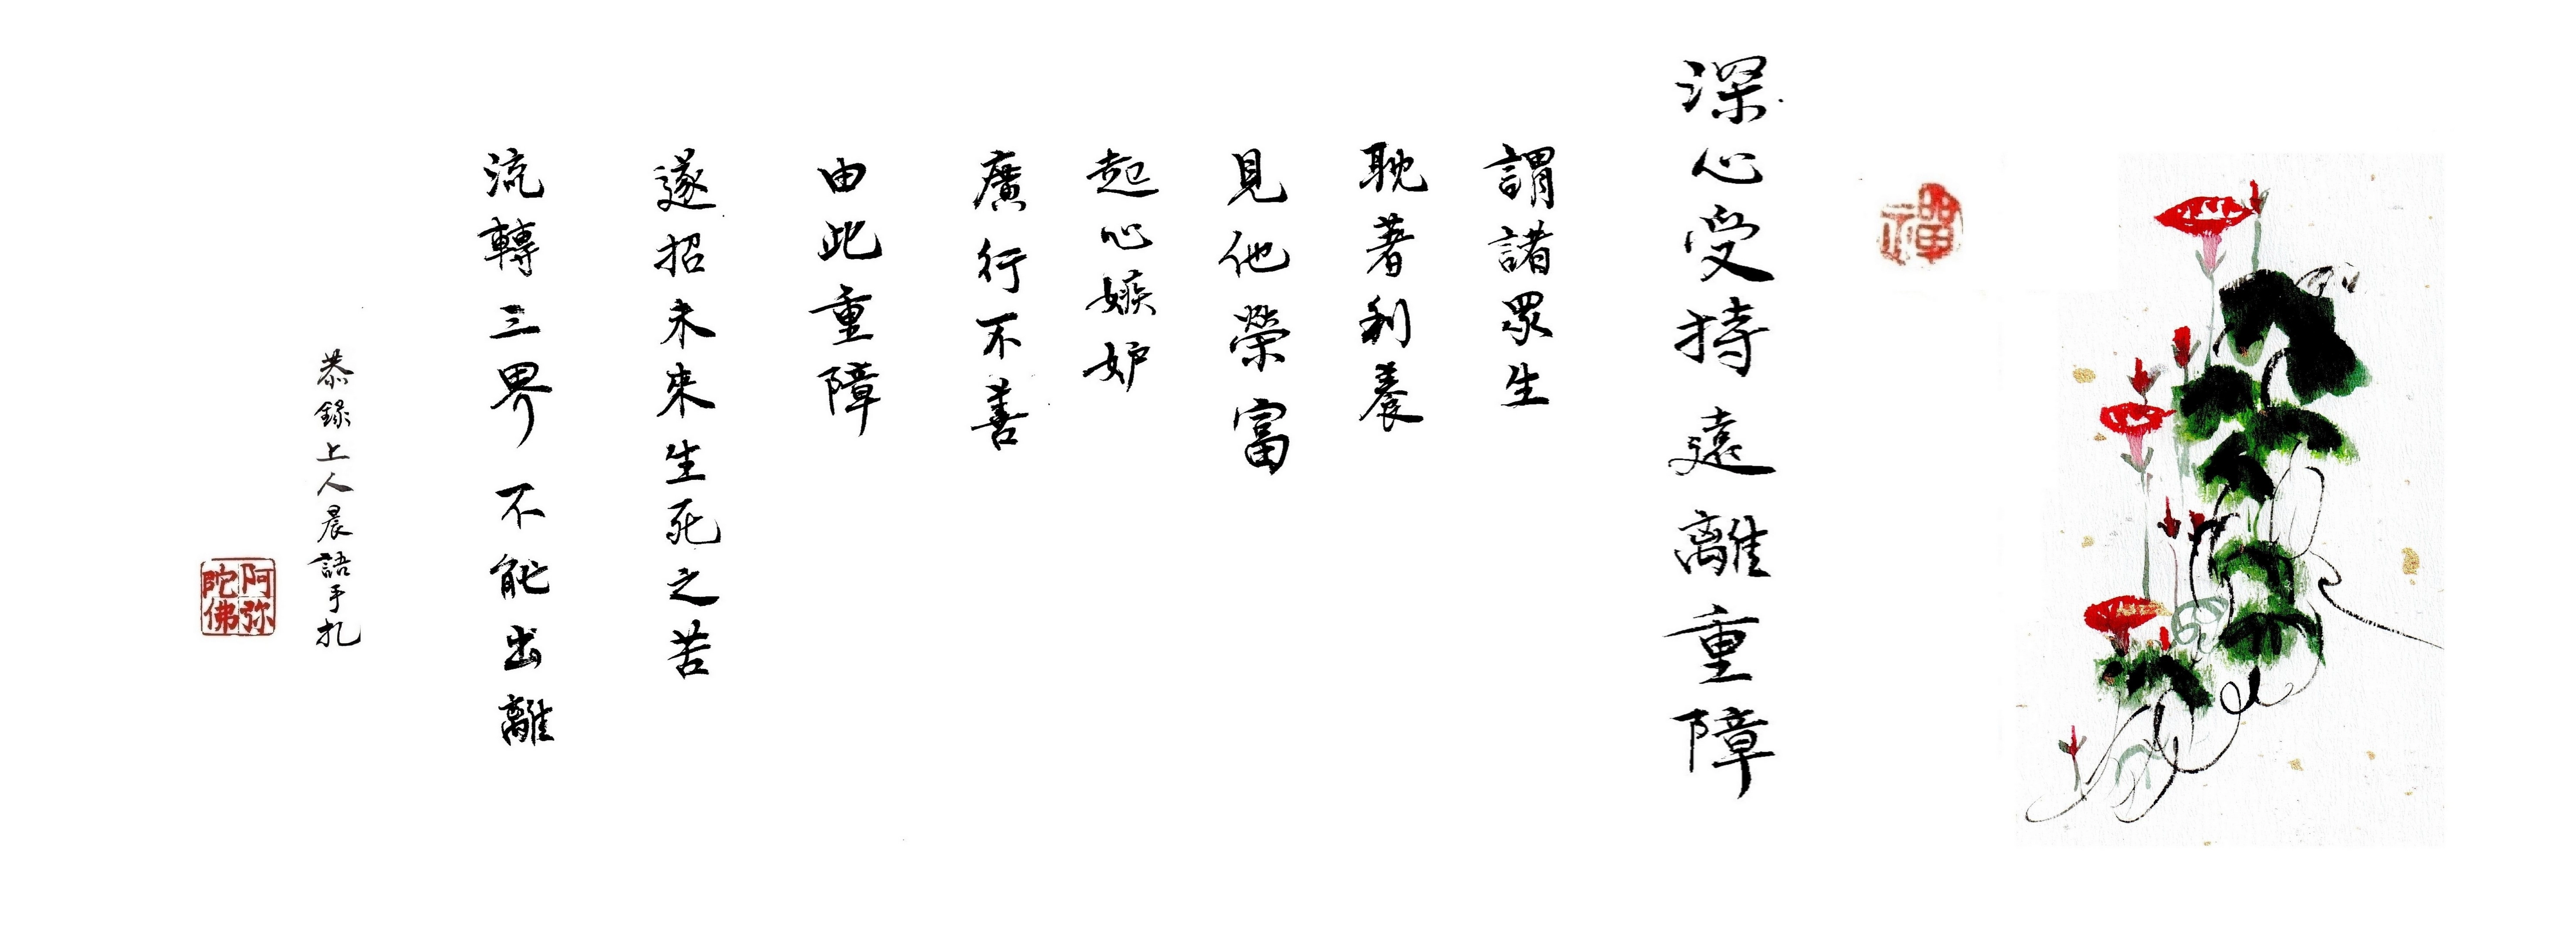 禪
深心受持遠離重障
謂諸眾生
耽著利養
見他榮富
起心嫉妒
廣行不善
由此重障
遂招未來生死之苦
流轉三界不能出離
恭錄上人晨語手扎
阿弥陀佛